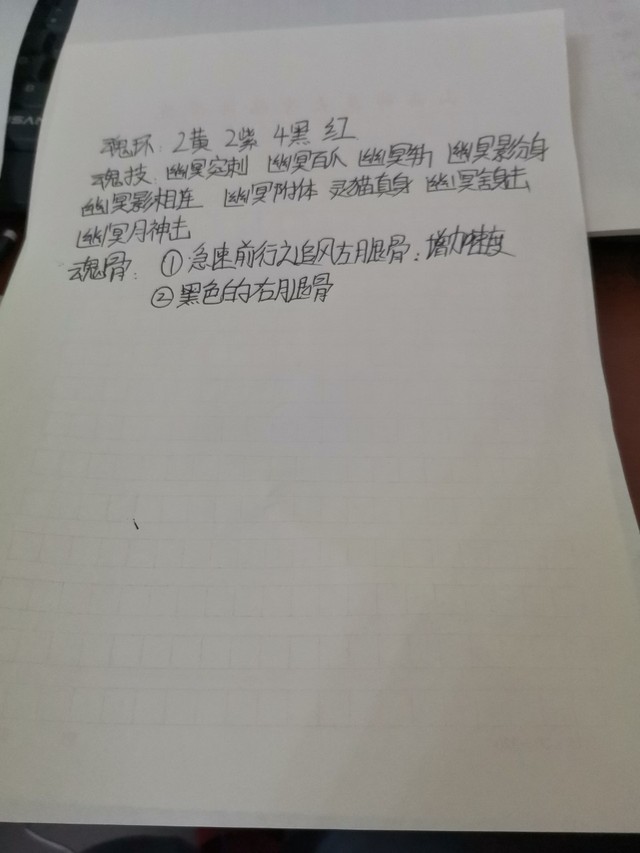 魂环：2黄 2紫 4黑 红
魂技：幽冥突刺 幽冥百爪 幽冥斩 幽冥影分身
幽冥影相连 幽冥附体 灵猫真身 幽冥舍身击
幽冥月神击
魂骨：①急速前行之追风左腿骨：增加速度
②黑色的右腿骨